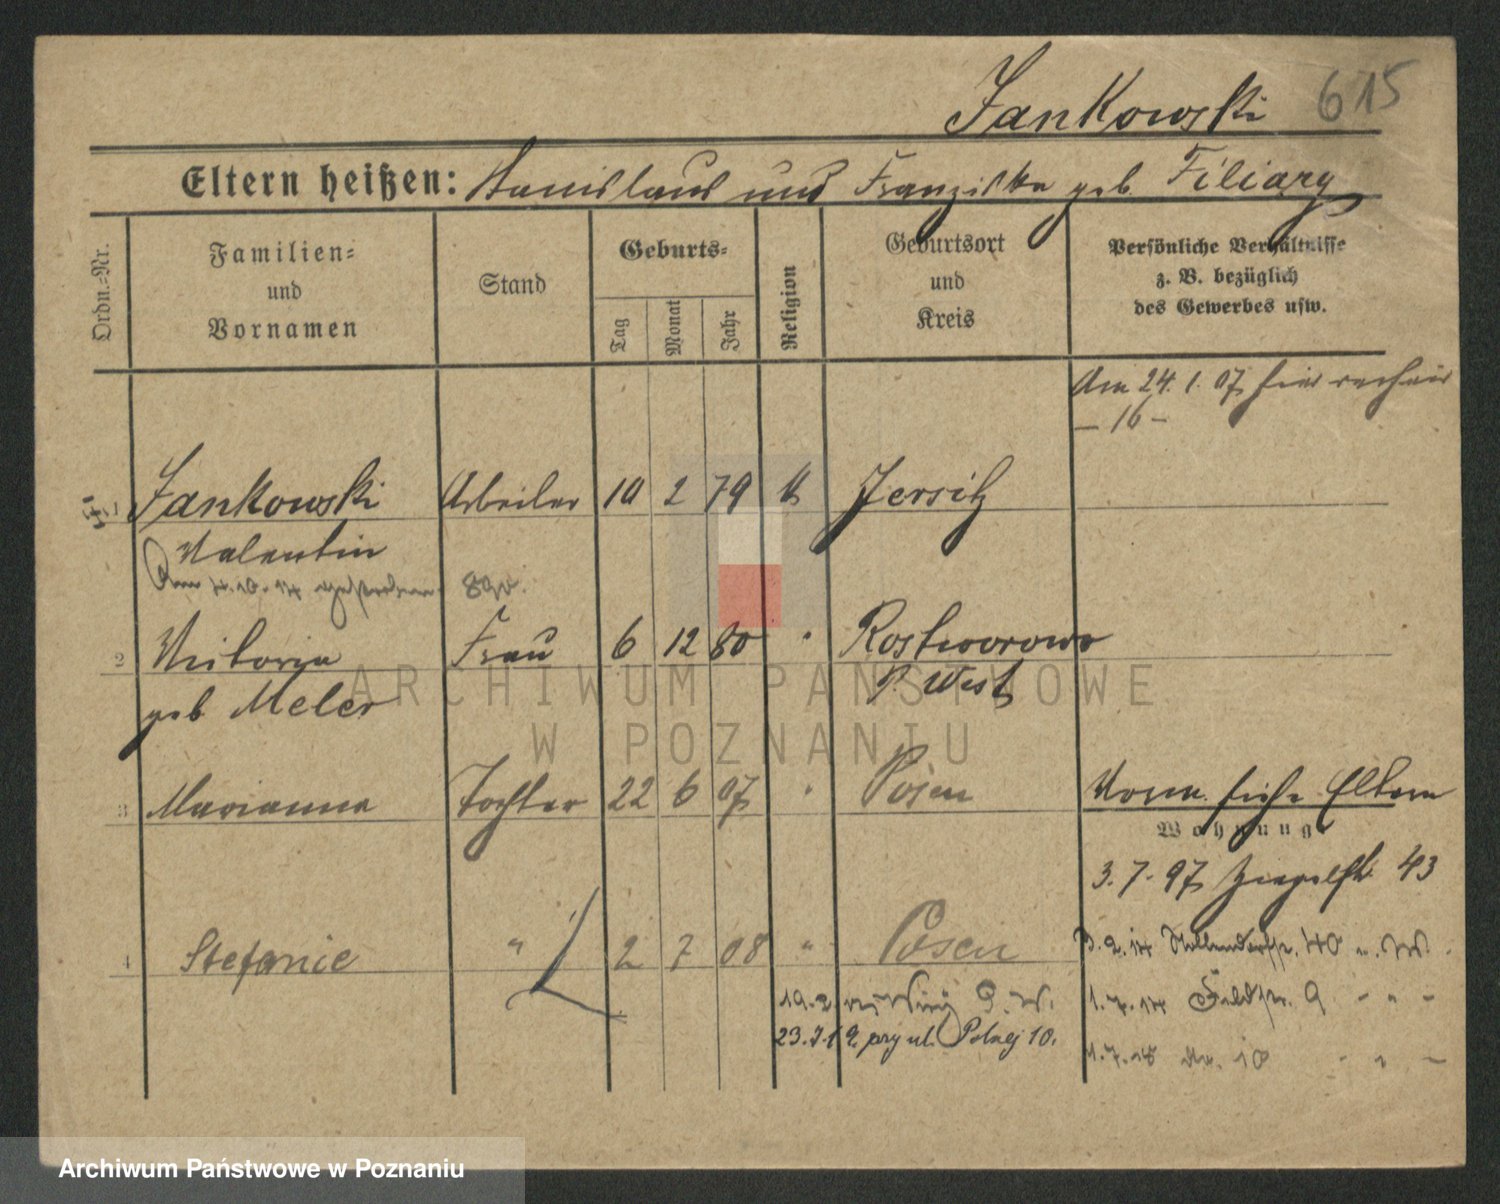 Jankowski 615
Eltern heißen: Stanislaus und Franziska geb. Filiary
Ordn.-Nr.
Familien-
und
Vornamen
Stand
Geburts-
Tag
Monat
Jahr
Religion
Geburtsort
und
Kreis
Persönliche Verhältnisse
z. B. bezüglich
des Gewerbes usw.
Am 24. 1. 07 hier
- 16 -
Jankowski Arbeiter 10 2 79 k Jersitz
Valentin
Am 4.10.14 gestorben 890.
2 Viktoria Frau 6 12 80 " Rostworowo
geb Meler P. West
3 Marianna Tochter 22 6 07 " Posen Vorm. siehe Eltern
Wohnung
3. 7. 97 Ziegelstr. 43
4 Stefanie " 2 7 08 " Posen
3. 2. 14 40 u. W.
19.2 P. W. 1. 7. 14 Feldstr. 9 - " -
23.7.19. przy ul. Polnej 10. 1. 7. 18 No. 10 - " -
ARCHIWUM PAŃSTWOWE
W POZNANIU
Archiwum Państwowe w Poznaniu